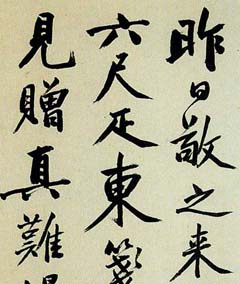 昨日敬之来
六尺疋東箋
見贈真難